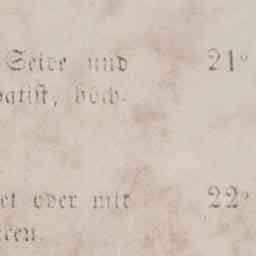 Seide und 21°
batist, höch-
et oder mit 22°